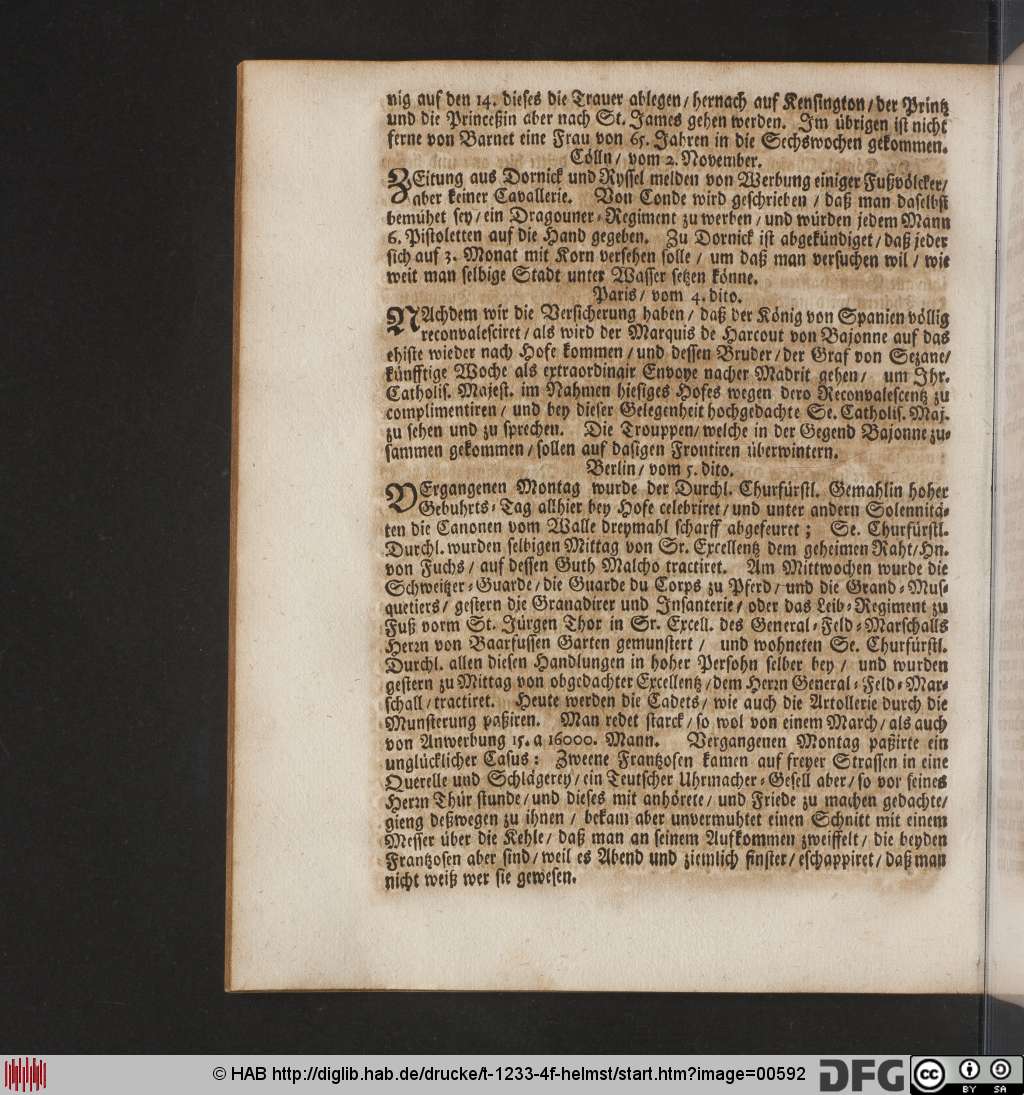 nig auf den 14. dieses die Trauer ablegen / hernach auf Kensington / der Printz
und die Princeßin aber nach St. James gehen werden. Im übrigen ist nicht
ferne von Barnet eine Frau von 65. Jahren in die Sechswochen gekommen.
Cölln / vom 2. November.
ZEitung aus Dornick und Ryssel melden von Werbung einiger Fußvölcker /
aber keiner Cavallerie. Von Conde wird geschrieben / daß man daselbst
bemühet sey / ein Dragouner-Regiment zu werben / und würden jedem Mann
6. Pistoletten auf die Hand gegeben. Zu Dornick ist abgekündiget / daß jeder
sich auf 3. Monat mit Korn versehen solle / um daß man versuchen wil / wie
weit man selbige Stadt unter Wasser setzen könne.
Paris / vom 4. dito.
NAchdem wir die Versicherung haben / daß der König von Spanien völlig
reconvalesciret / als wird der Marquis de Harcout von Bajonne auf das
ehiste wieder nach Hofe kommen / und dessen Bruder / der Graf von Sezane /
künfftige Woche als extraordinair Envoye nacher Madrit gehen / um Ihr.
Catholis. Majest. im Nahmen hiesiges Hofes wegen dero Reconvalescentz zu
complimentiren / und bey dieser Gelegenheit hochgedachte Se. Catholis. Maj.
zu sehen und zu sprechen. Die Trouppen / welche in der Gegend Bajonne zu-
sammen gekommen / sollen auf dasigen Frontiren überwintern.
Berlin / vom 5. dito.
VErgangenen Montag wurde der Durchl. Churfürstl. Gemahlin hoher
Gebuhrts-Tag allhier bey Hofe celebriret / und unter andern Solennitä-
ten die Canonen vom Walle dreymahl scharff abgefeuret ; Se. Churfürstl.
Durchl. wurden selbigen Mittag von Sr. Excellentz dem geheimen Raht / Hn.
von Fuchs / auf dessen Guth Malcho tractiret. Am Mittwochen wurde die
Schweitzer-Guarde / die Guarde du Corps zu Pferd / und die Grand-Mus-
quetiers / gestern die Granadirer und Infanterie / oder das Leib-Regiment zu
Fuß vorm St. Jürgen Thor in Sr. Excell. des General-Feld-Marschalls
Herrn von Baarfussen Garten gemunstert / und wohneten Se. Churfürstl.
Durchl. allen diesen Handlungen in hoher Persohn selber bey / und wurden
gestern zu Mittag von obgedachter Excellentz / dem Herrn General-Feld-Mar-
schall / tractiret. Heute werden die Cadets / wie auch die Artollerie durch die
Munsterung paßiren. Man redet starck / so wol von einem March / als auch
von Anwerbung 15. a 16000. Mann. Vergangenen Montag paßirte ein
unglücklicher Casus : Zweene Frantzosen kamen auf freyer Strassen in eine
Querelle und Schlägerey / ein Teutscher Uhrmacher-Gesell aber / so vor seines
Herrn Thür stunde / und dieses mit anhörete / und Friede zu machen gedachte /
gieng deßwegen zu ihnen / bekam aber unvermuhtet einen Schnitt mit einem
Messer über die Kehle / daß man an seinem Aufkommen zweiffelt / die beyden
Frantzosen aber sind / weil es Abend und ziemlich finster / eschappiret / daß man
nicht weiß wer sie gewesen.
© HAB http://diglib.hab.de/drucke/t-1233-4f-helmst/start.htm?image=00592
DFG
cc
BY SA